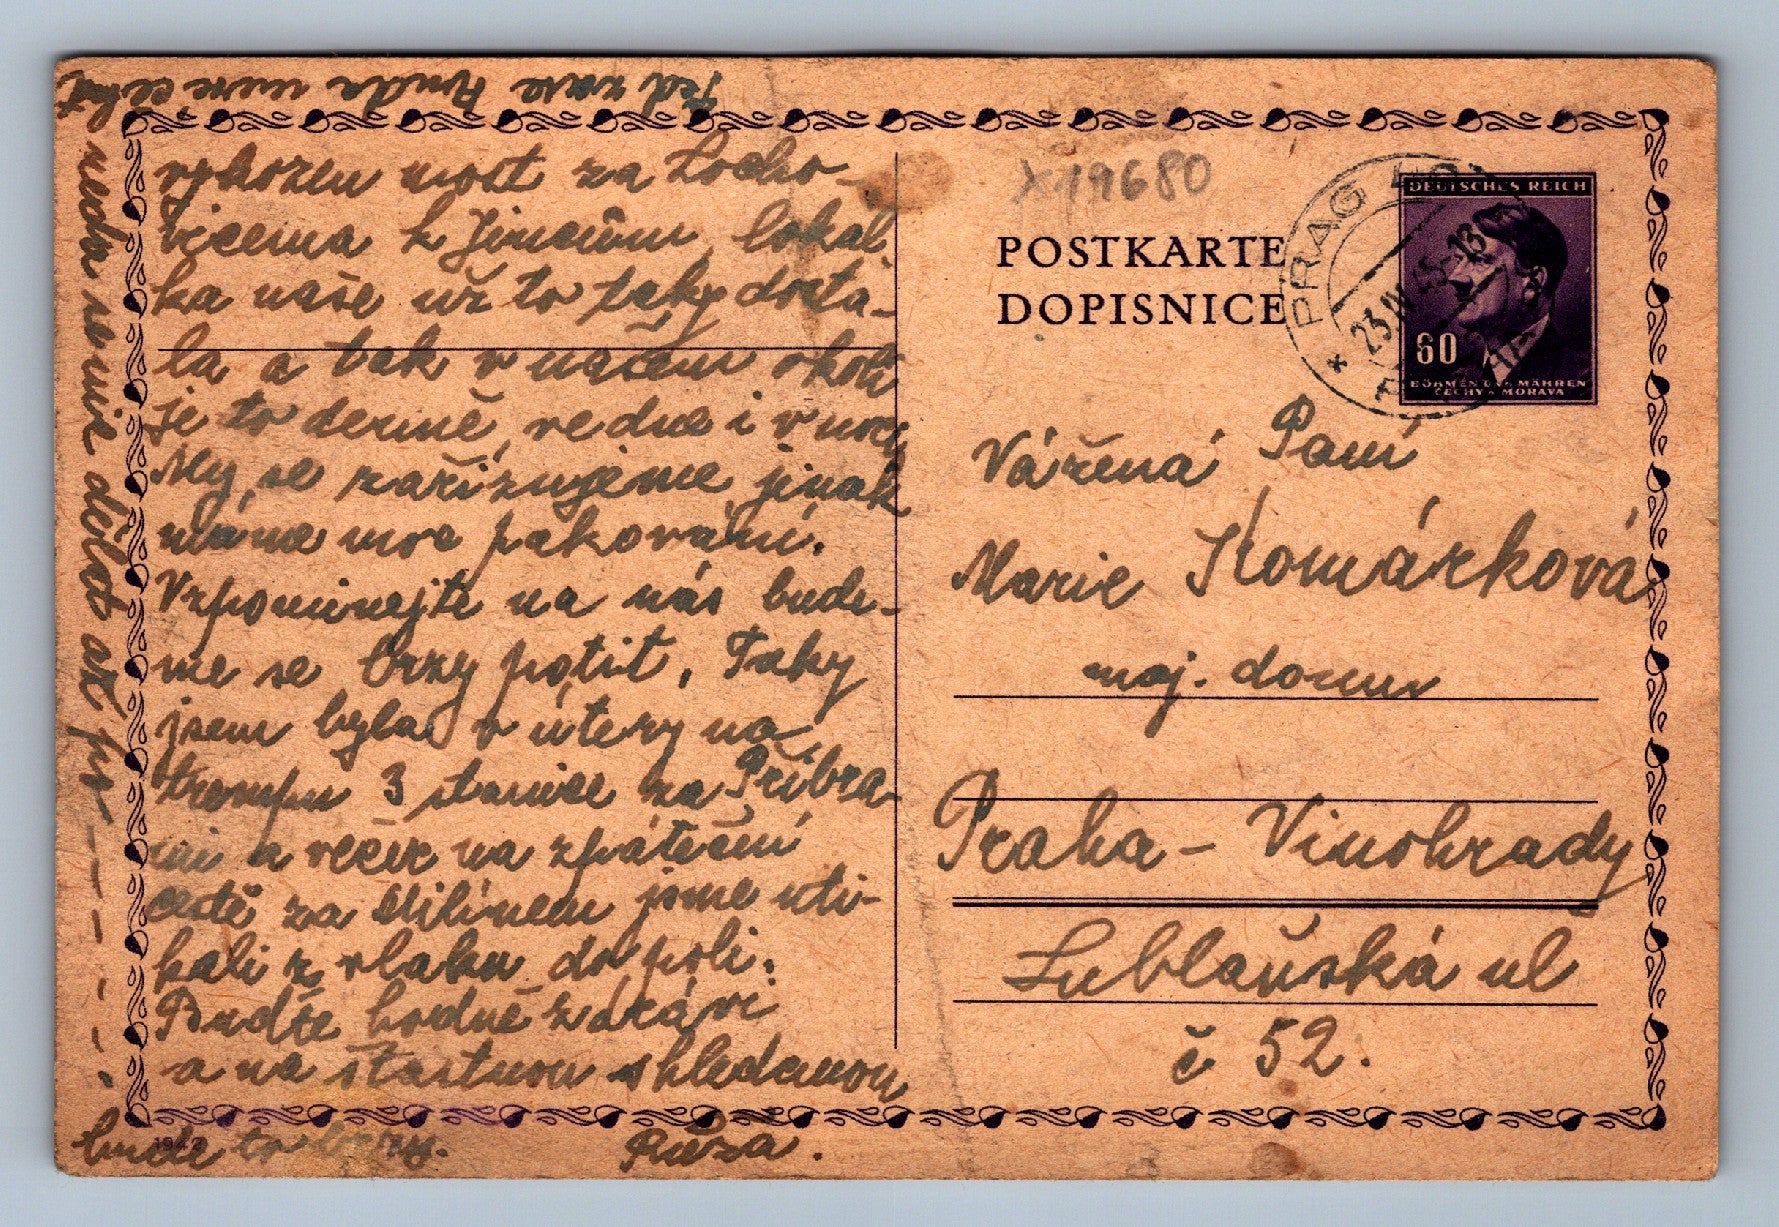 Teď zase Ruda
nedá se nic dělat až po
vyhozen most za Locho-
vicema k Jincům, lokál
ka naše už to taky dosta-
la a tak v našem okolí
je to denně, ve dne i v noci
My se zařizujeme jinak
máme moc pakování.
Vzpomínejte na nás bude-
me se brzy potit, Taky
jsem byla v úterý na
trempu 3 stanice za Příbra-
mí a večer na zpáteční
cestě za Milínem jsme utí-
kali z vlaku do polí.
Buďte hodně zdrávi
a na šťastnou shledanou
bude to brzy. Růza.
1942
X 19680
POSTKARTE
DOPISNICE
PRAG
23.IV.45-13
DEUTSCHES REICH
60
BÖHMEN UND MÄHREN
ČECHY A MORAVA
Vážená Paní
Marie Komárková
maj. domu
Praha - Vinohrady
Lublaňská ul
č 52.